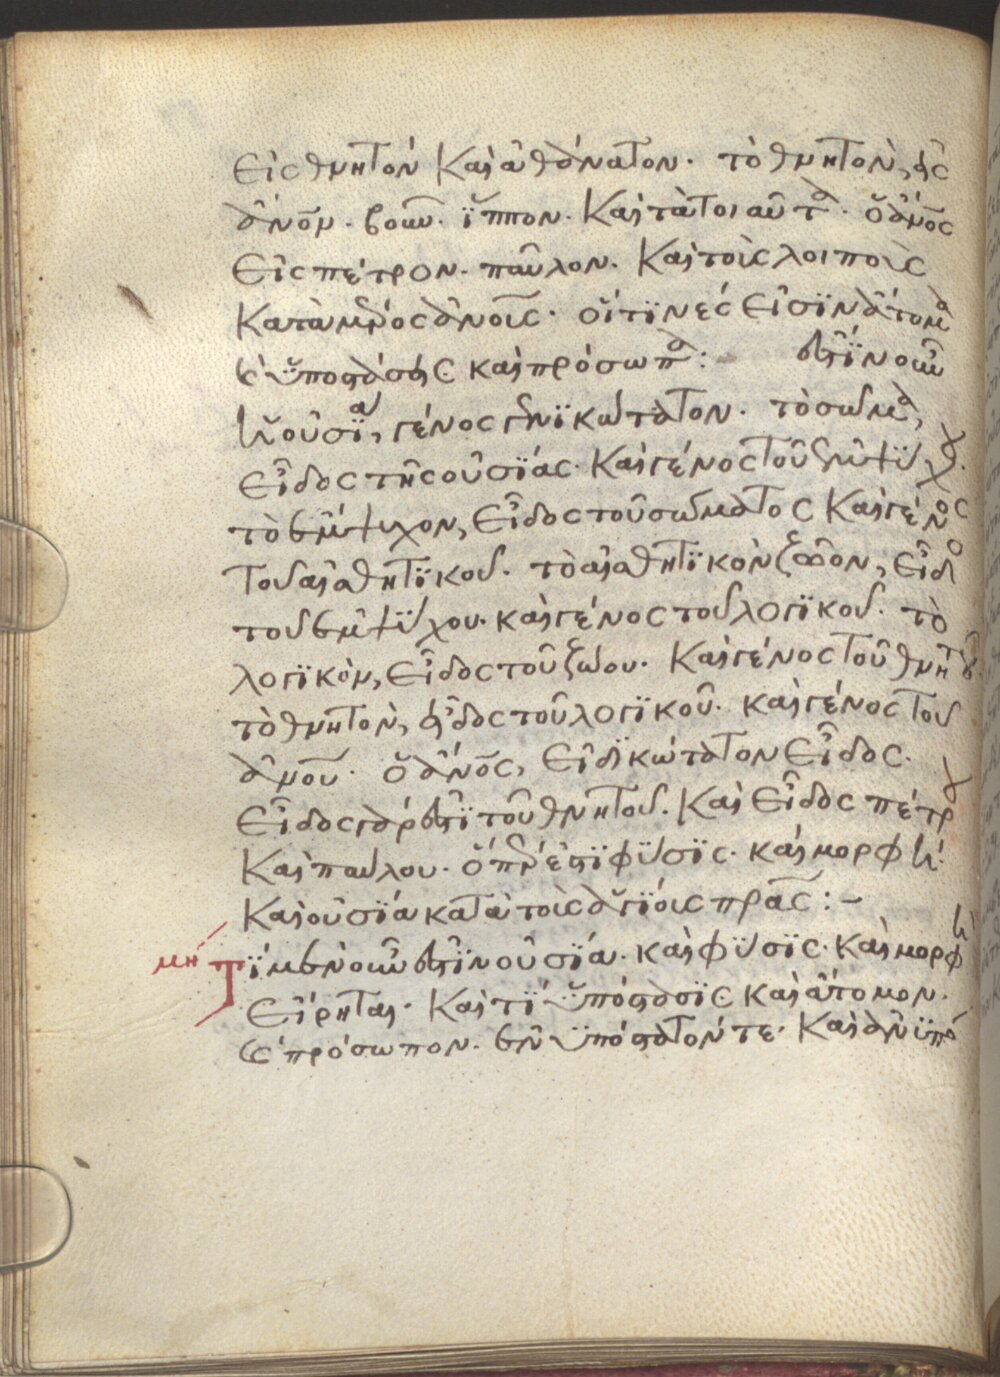 εἰς θνητὸν καὶ ἀθάνατον· τὸ θνητὸν, εἰς
ἄνον· βοῦν· ἵππον· καὶ τὰ τοιαῦτα· ὁ ἄνος
εἰς πέτρον· παῦλον· καὶ τοὺς λοιποὺς
κατὰ μέρος ἄνους· οἵτινές εἰσιν ἄτομα
καὶ ὑποστάσεις καὶ πρόσωπα: ἔστιν οὖν
ἡ οὐσία, γένος γενικώτατον· τὸ σῶμα,
εἶδος τῆς οὐσίας· καὶ γένος τοῦ ἐμψύχου·
τὸ ἔμψυχον, εἶδος τοῦ σώματος καὶ γένος
τοῦ αἰσθητικοῦ· τὸ αἰσθητικὸν ζῶον, εἶδος
τοῦ ἐμψύχου· καὶ γένος τοῦ λογικοῦ· τὸ
λογικὸν, εἶδος τοῦ ζώου· καὶ γένος τοῦ θνητοῦ·
τὸ θνητὸν, εἶδος τοῦ λογικοῦ· καὶ γένος τοῦ
ἄνου· ὁ ἄνος, εἰδικώτατον εἶδος·
εἶδος γάρ ἐστι τοῦ θνητοῦ· καὶ εἶδος πέτρου
καὶ παύλου· ὅπερ ἐστὶ φύσις· καὶ μορφή·
καὶ οὐσία κατὰ τοὺς ἁγίους πρας:–
μη Τί μὲν οὖν ἐστὶν οὐσία· καὶ φύσις· καὶ μορφὴ
εἴρηται· καὶ τί ὑπόστασις καὶ ἄτομον·
καὶ πρόσωπον· ἐνυπόστατόν τε· καὶ ἀνυπό